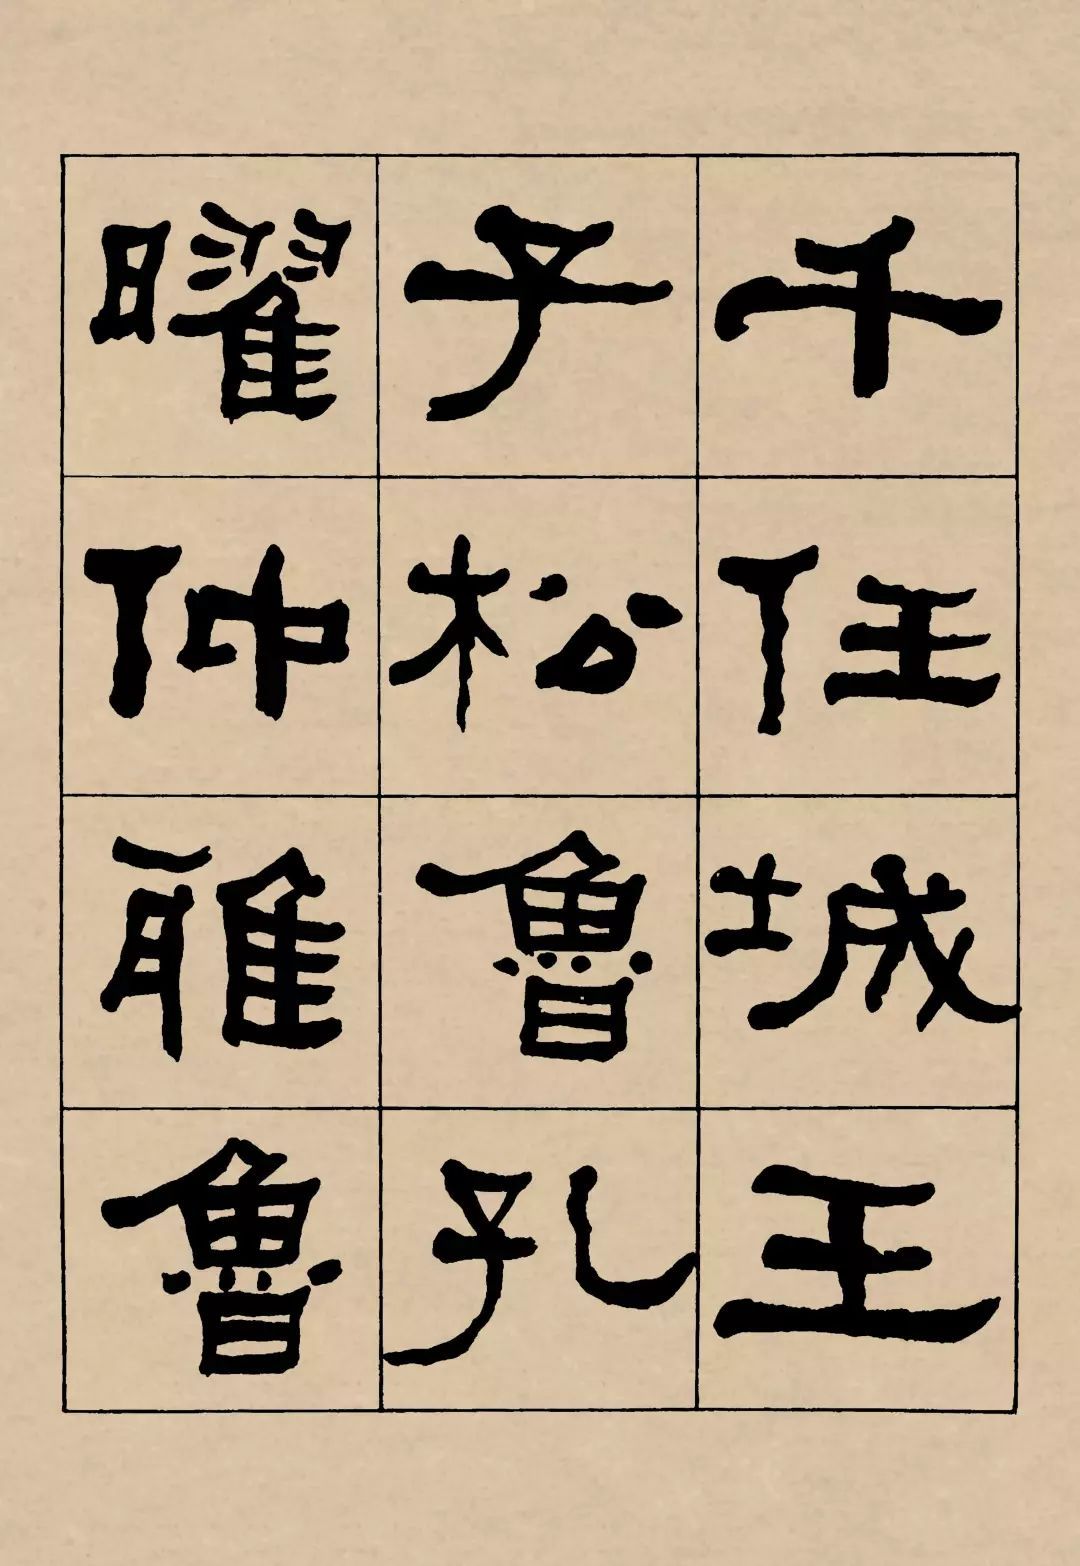 千任城王
子松魯孔
曜仲雅魯